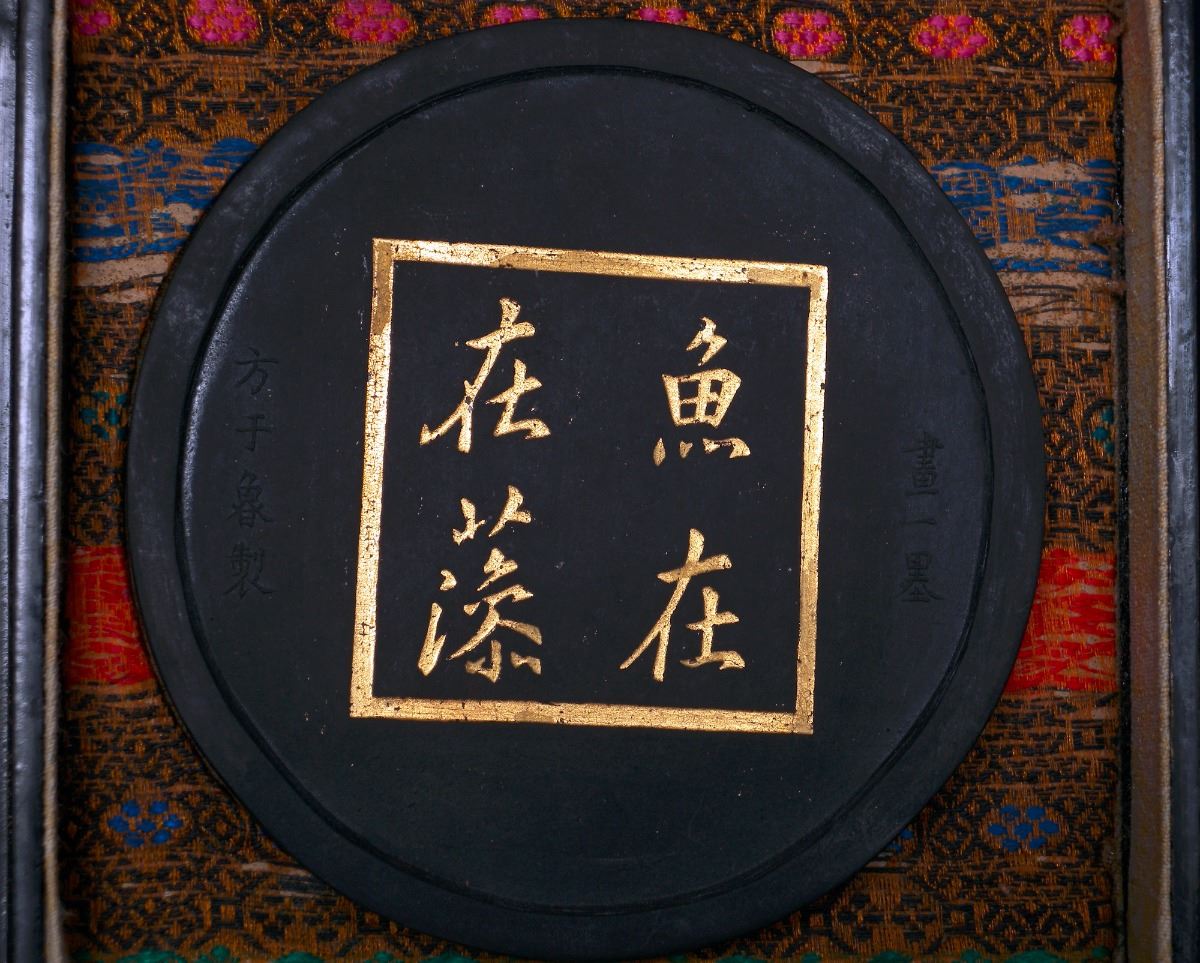 畫一墨
魚在
在藻
方于魯製